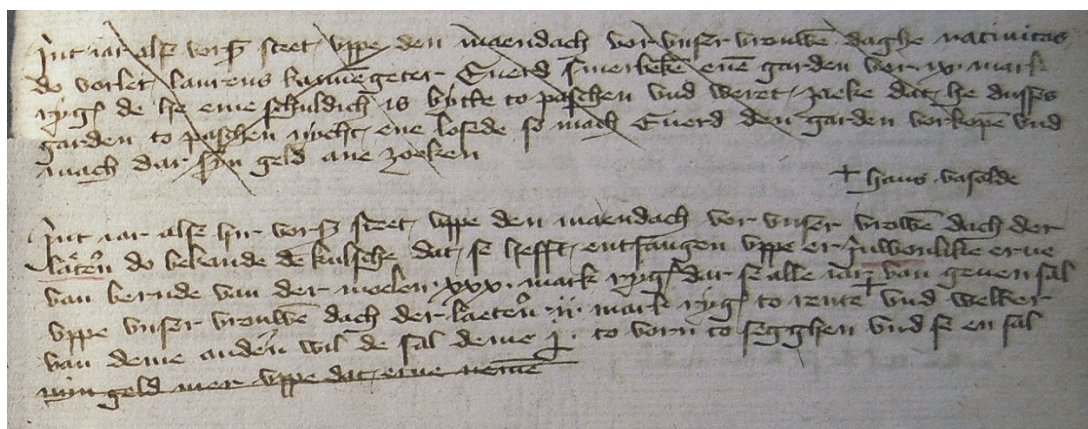 Int iar alse vorß steet vppe den maendach vor vnser vrouwē daghe natiuitas
do vorlet laurens kannēgeter Euerd smerbekē enē garden vor ix mark
rygß de he eme schuldich is bytte to paschen vnd weret zaeke dat he dusses
garden to paschen nycht ene losede so mach Euerd den garden vorkopē vnd
mach dar syn geld ane zoeken
+ hans vasolde
Int iar alse hir vorß steet vppe den maendach vor vnser vrowē dach der
laetēn do bekande de kulsche dat se hefft entfangen vppe er Inwonlikē erue
van bernde van der moelen xxx mark rygß dar se alle iar van geuen sal
vppe vnser vrouwēn dach der laetēn ii mark rygß to rente + vnd welker
van deme andēn wil de sal deme to vorn to segghen vnd se en sal
nyn geld mer vppe dat erue nemē